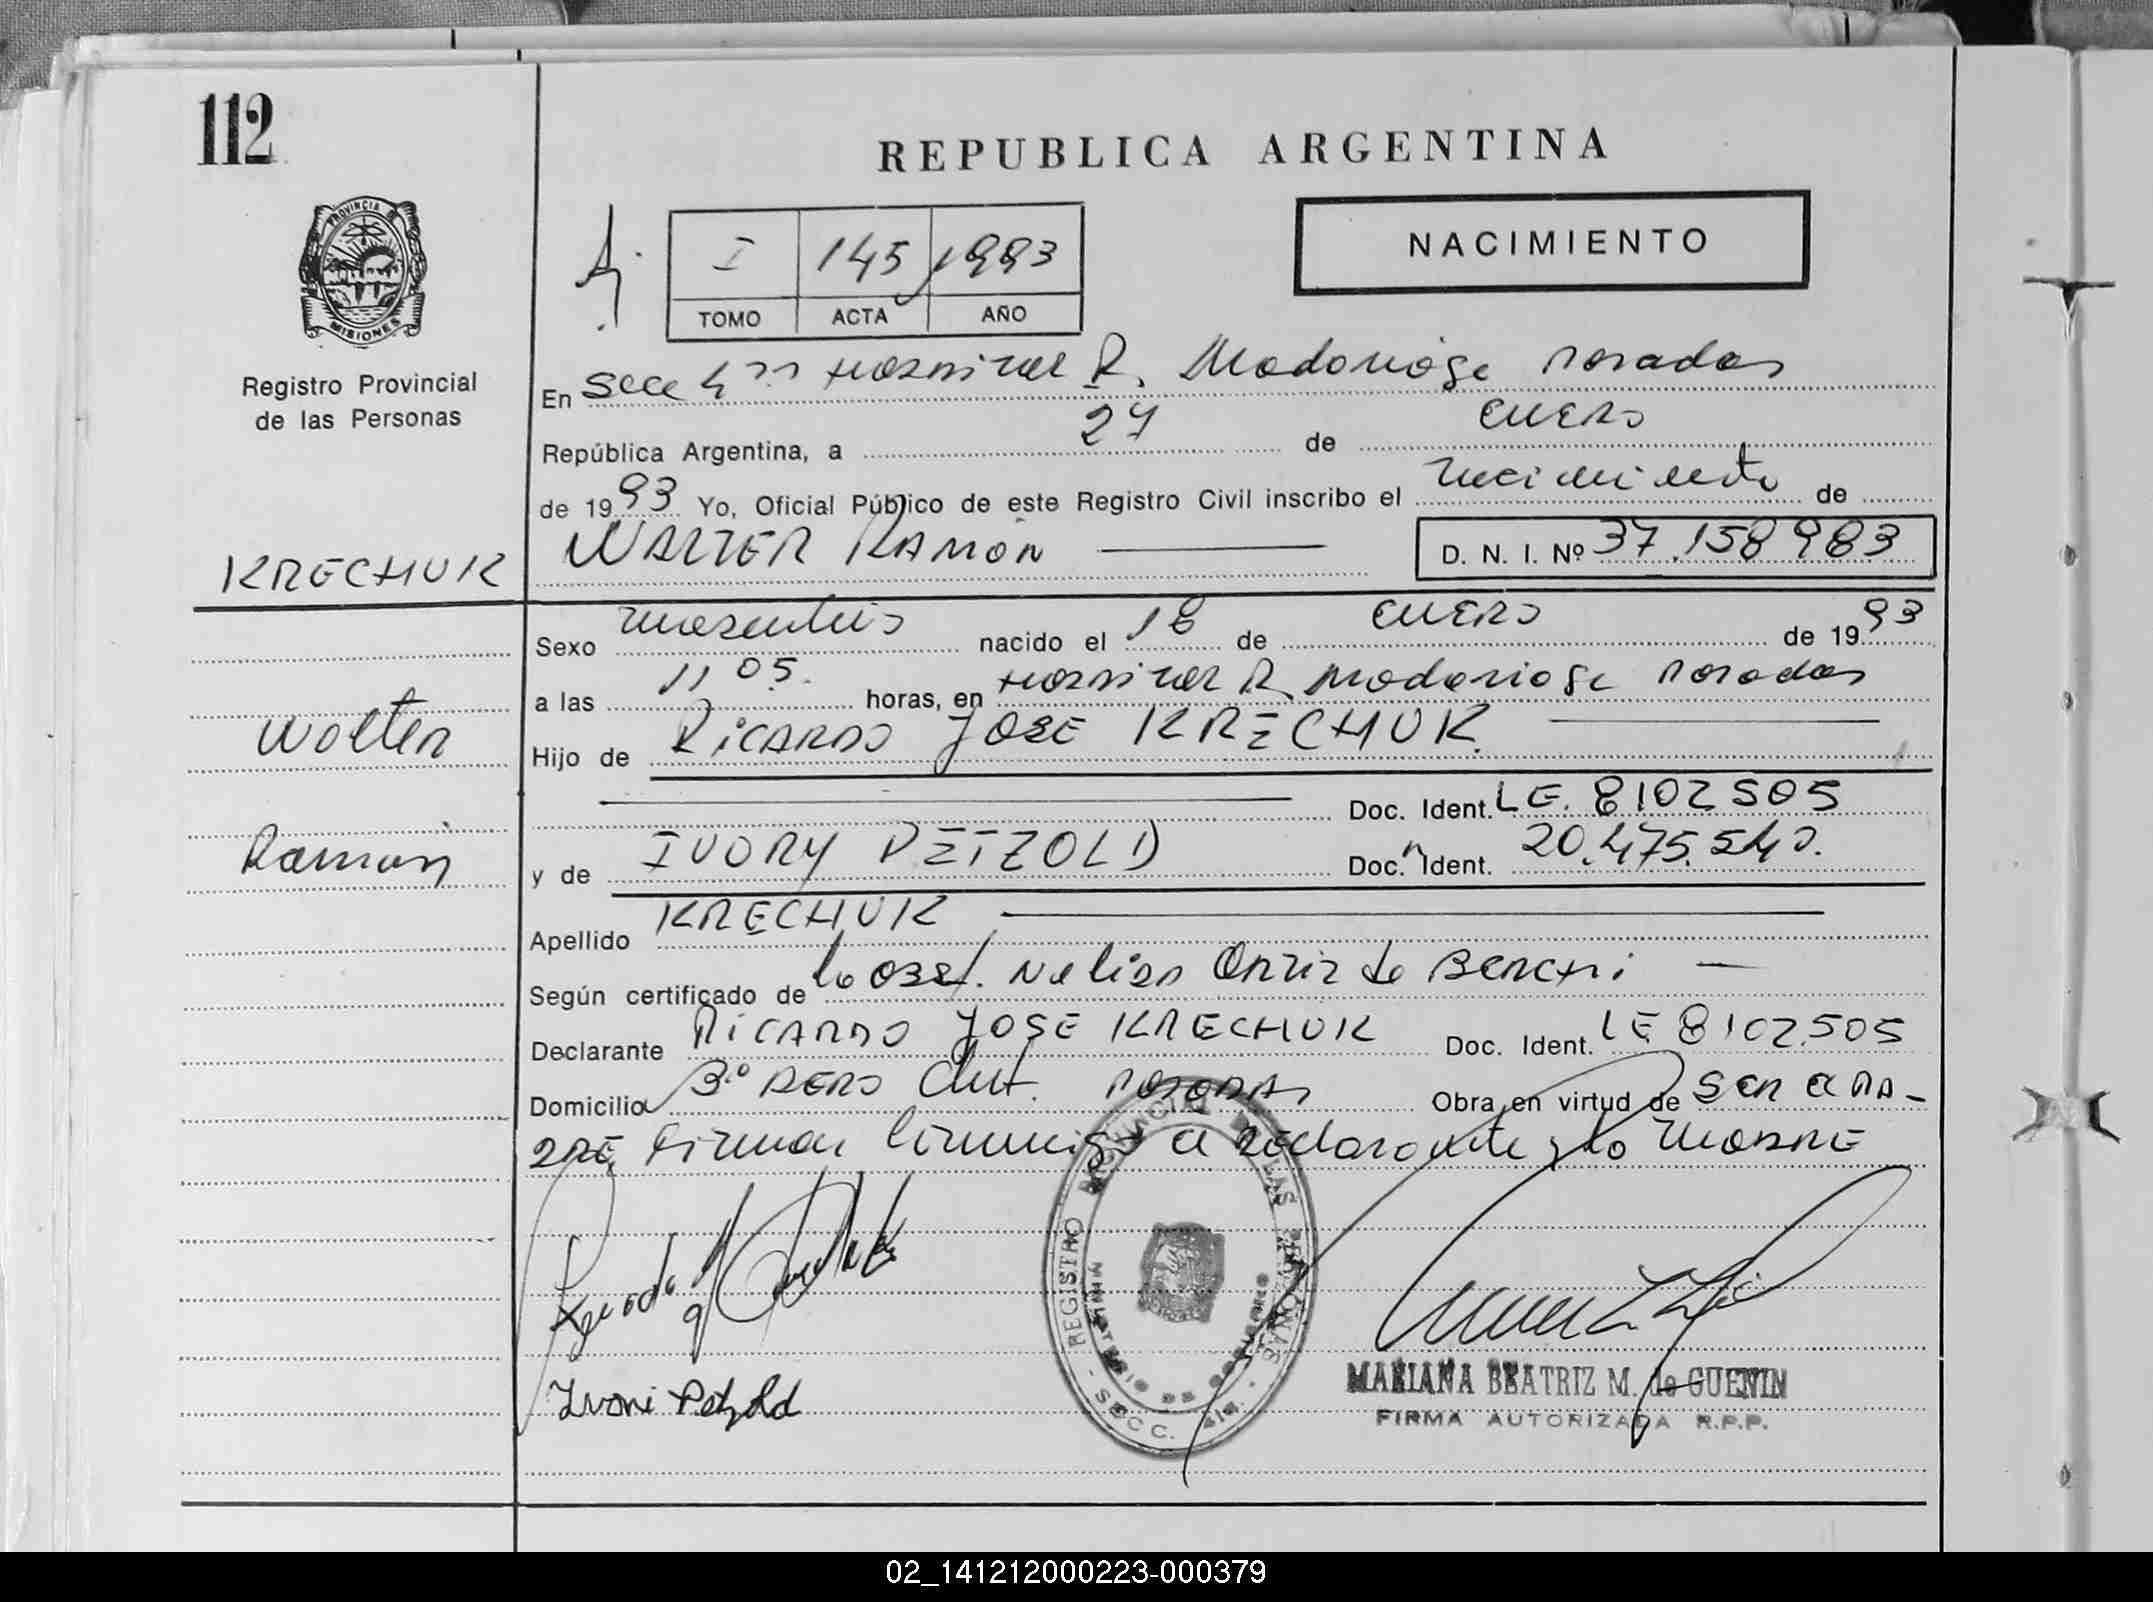 112
REPUBLICA ARGENTINA
PROVINCIA DE
MISIONES
I 145 1993
TOMO ACTA AÑO
NACIMIENTO
Registro Provincial
de las Personas
En Secc 4ta Hospital R. Madariaga Posadas
República Argentina, a 27 de enero
de 1993 Yo, Oficial Público de este Registro Civil inscribo el nacimiento de
KRECHUK WALTER RAMON D. N. I. Nº 37.158983
Sexo masculino nacido el 18 de enero de 1993
a las 11 05. horas, en Hospital R. Madariaga Posadas
Walter
Hijo de RICARDO JOSE KRECHUK
Doc. Ident. LE. 8102505
Ramon
y de IVORY PETZOLD Doc. Ident. 20.475.540.
Apellido KRECHUK
Según certificado de la Obst. Nelida Ortiz de
Declarante RICARDO JOSE KRECHUK Doc. Ident. LE 8102.505
Domicilio Posadas Obra en virtud de Ser el PA-
DRE Firman conmigo el declarante y la MADRE
REGISTRO PROVINCIAL DE LAS PERSONAS
MINISTERIO DE GOBIERNO
- SECC. 4ta. -
Ivoni Petzold
MARIANA BEATRIZ M. de GUENIN
FIRMA AUTORIZADA R.P.P.
02_141212000223-000379